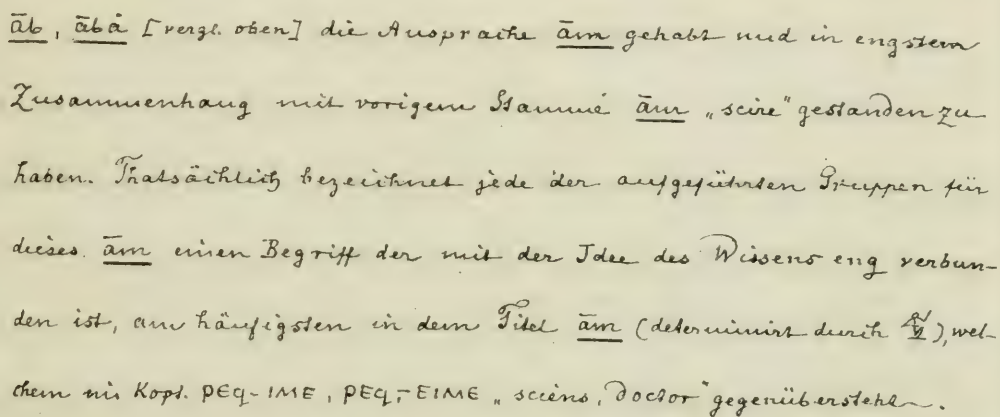 āb, ābȧ [vergl. oben] die Aussprache ām gehabt und in engstem
Zusammenhang mit vorigem Stamme ām „scire" gestanden zu
haben. Thatsächlich bezeichnet jede der aufgeführten Gruppen für
dieses ām einen Begriff der mit der Idee des Wissens eng verbun-
den ist, am häufigsten in dem Titel ām (determinirt durch), wel-
chem im Kopt. ⲣⲉϥ-ⲓⲙⲉ, ⲣⲉϥ-ⲉⲓⲙⲉ „sciens, doctor" gegenübersteht.